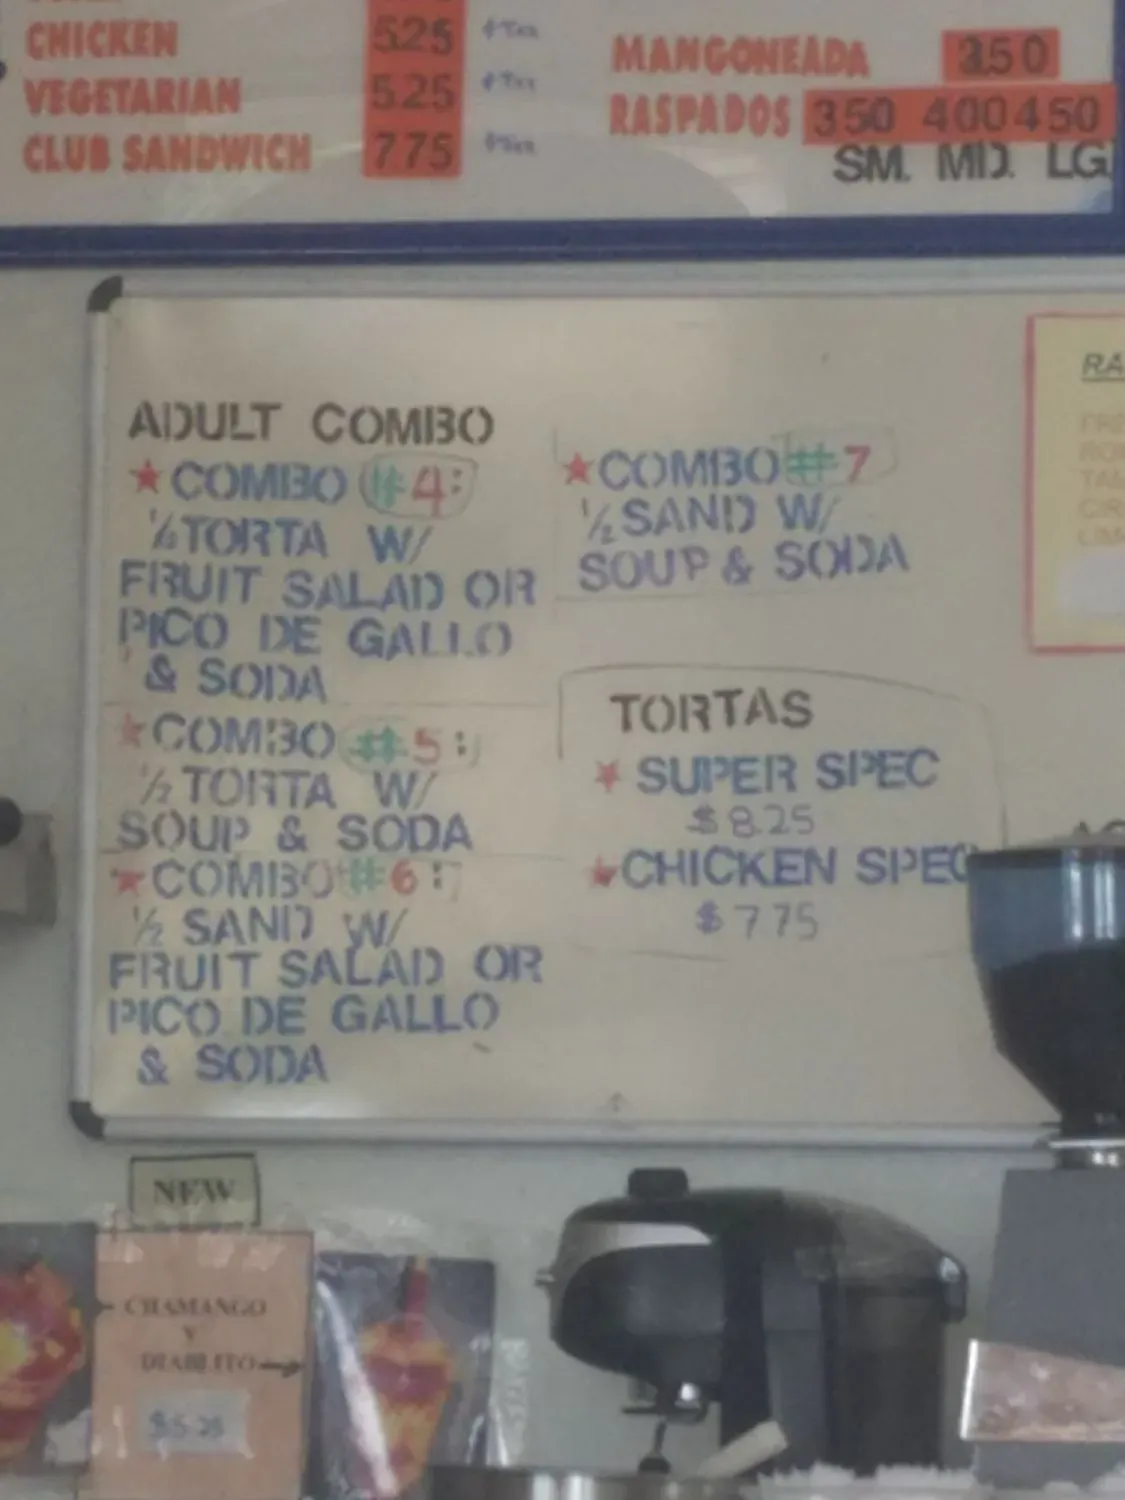 CHICKEN 525 +Tax
VEGETARIAN 525 +Tax
CLUB SANDWICH 775 +Tax
MANGONEADA 350
RASPADOS 350 400 450
SM. MD. LG
ADULT COMBO
★COMBO #4:
½ TORTA W/
FRUIT SALAD OR
PICO DE GALLO
& SODA
★COMBO #5:
½ TORTA W/
SOUP & SODA
★COMBO #6:
½ SAND W/
FRUIT SALAD OR
PICO DE GALLO
& SODA
★COMBO #7
½ SAND W/
SOUP & SODA
TORTAS
★ SUPER SPEC
$8.25
★CHICKEN SPEC
$775
RA
NEW
CHAMANGO
Y
DIABLITO→
$5.25